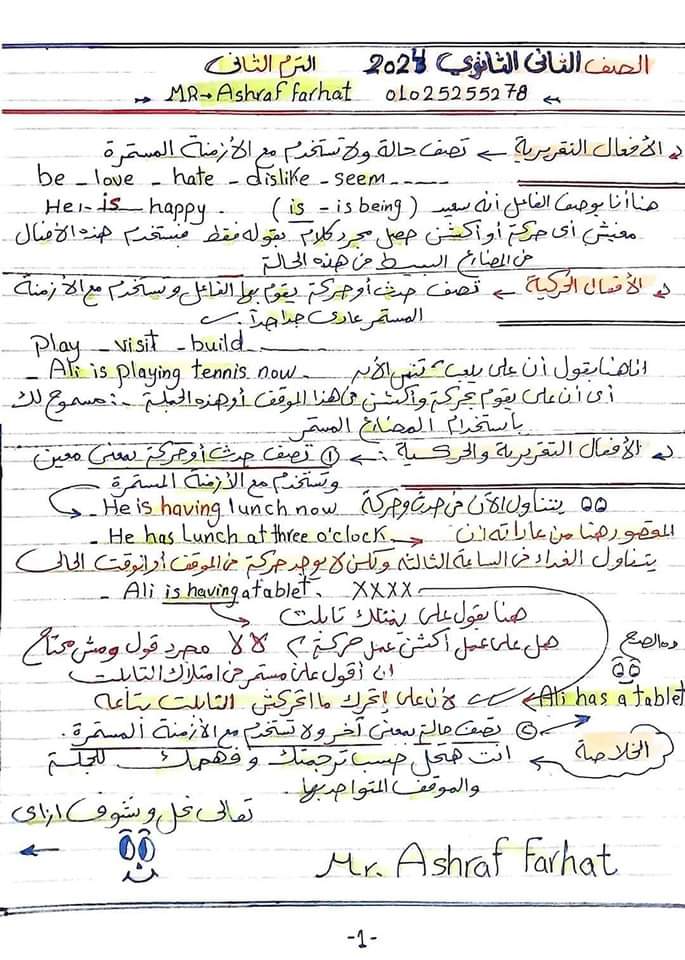 الصف الثانى الثانوي 2024 الترم الثانى
MR→ Ashraf farhat 01025255278
الأفعال التقريرية ← تصف حالة ولا تستخدم مع الأزمنة المستمرة
be - love - hate - dislike - seem -----
He - is - happy . ( is - is being ) هنا أنا بوصف الفاعل أنه سعيد
مفيش أى حركة أو أكشن حصل مجرد كلام بقوله فقط فبستخدم هذه الأفعال
فى المضارع البسيط فى هذه الحالة
الأفعال الحركية ← تصف حدث أو حركة يقوم بها الفاعل وتستخدم مع الأزمنة
المستمر عادى جدا جداً
Play - visit - build -
- Ali is playing tennis now - انا هنا بقول أن على يلعب تنس الآن
أى أن على يقوم بحركة وأكشن فى هذا الموقف أو هذه الجملة ∴ مسموح لك
بأستخدام المضارع المستمر
الأفعال التقريرية والحركية :← ① تصف حدث أو حركة بمعنى معين
وتستخدم مع الأزمنة المستمرة
- He is having lunch now يتناول الآن فى حدث وحركة
- He has Lunch at three o'clock → المقصود هنا من عاداته أن
يتناول الغداء فى الساعة الثالثة ولكن لا يوجد حركة فى الموقف أو الوقت الحالى
- Ali is having a tablet . XXXX
هنا بقول على يمتلك تابلت
هل على عمل أكشن عمل حركة ؟ لا لا مجرد قول ومش محتاج
ده الصح
ان أقول على مستمر فى امتلاك التابلت
Ali has a tablet لأن على إتحرك ما اتحركش التابلت بتاعه
② تصف حالة بمعنى آخر ولا تستخدم مع الأزمنة المستمرة .
الخلاصة انت هتحل حسب ترجمتك وفهمك للجملة
والموقف المتواجد بها .
تعالى نحل ونشوف ازاى
Mr. Ashraf Farhat
-1-